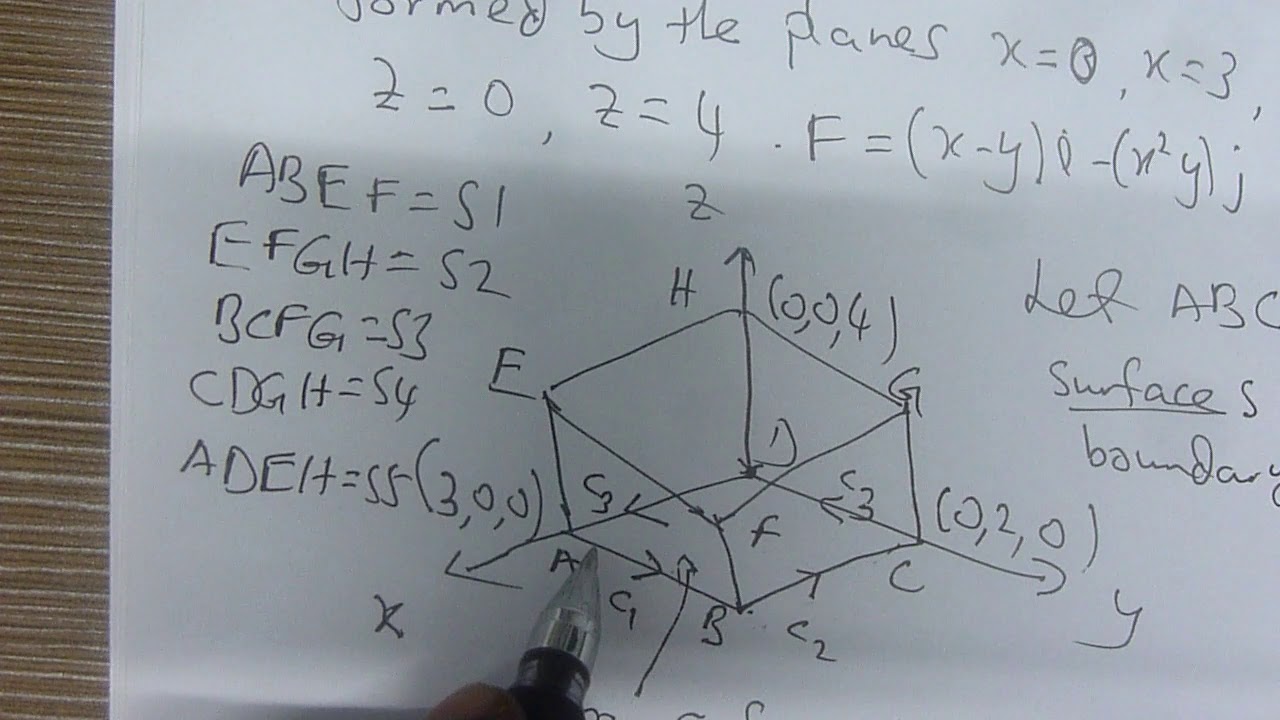 formed by the planes x=0, x=3,
z=0, z=4. F=(x-y)i-(x²y)j
ABEF=S1
EFGH=S2
BCFG=S3
CDGH=S4
ADEH=S5
Let ABC
Surfaces
boundary
z
H (0,0,4)
E
G
D
(3,0,0)
C3
C3
(0,2,0)
F
A
C
x
C1
B
C2
y